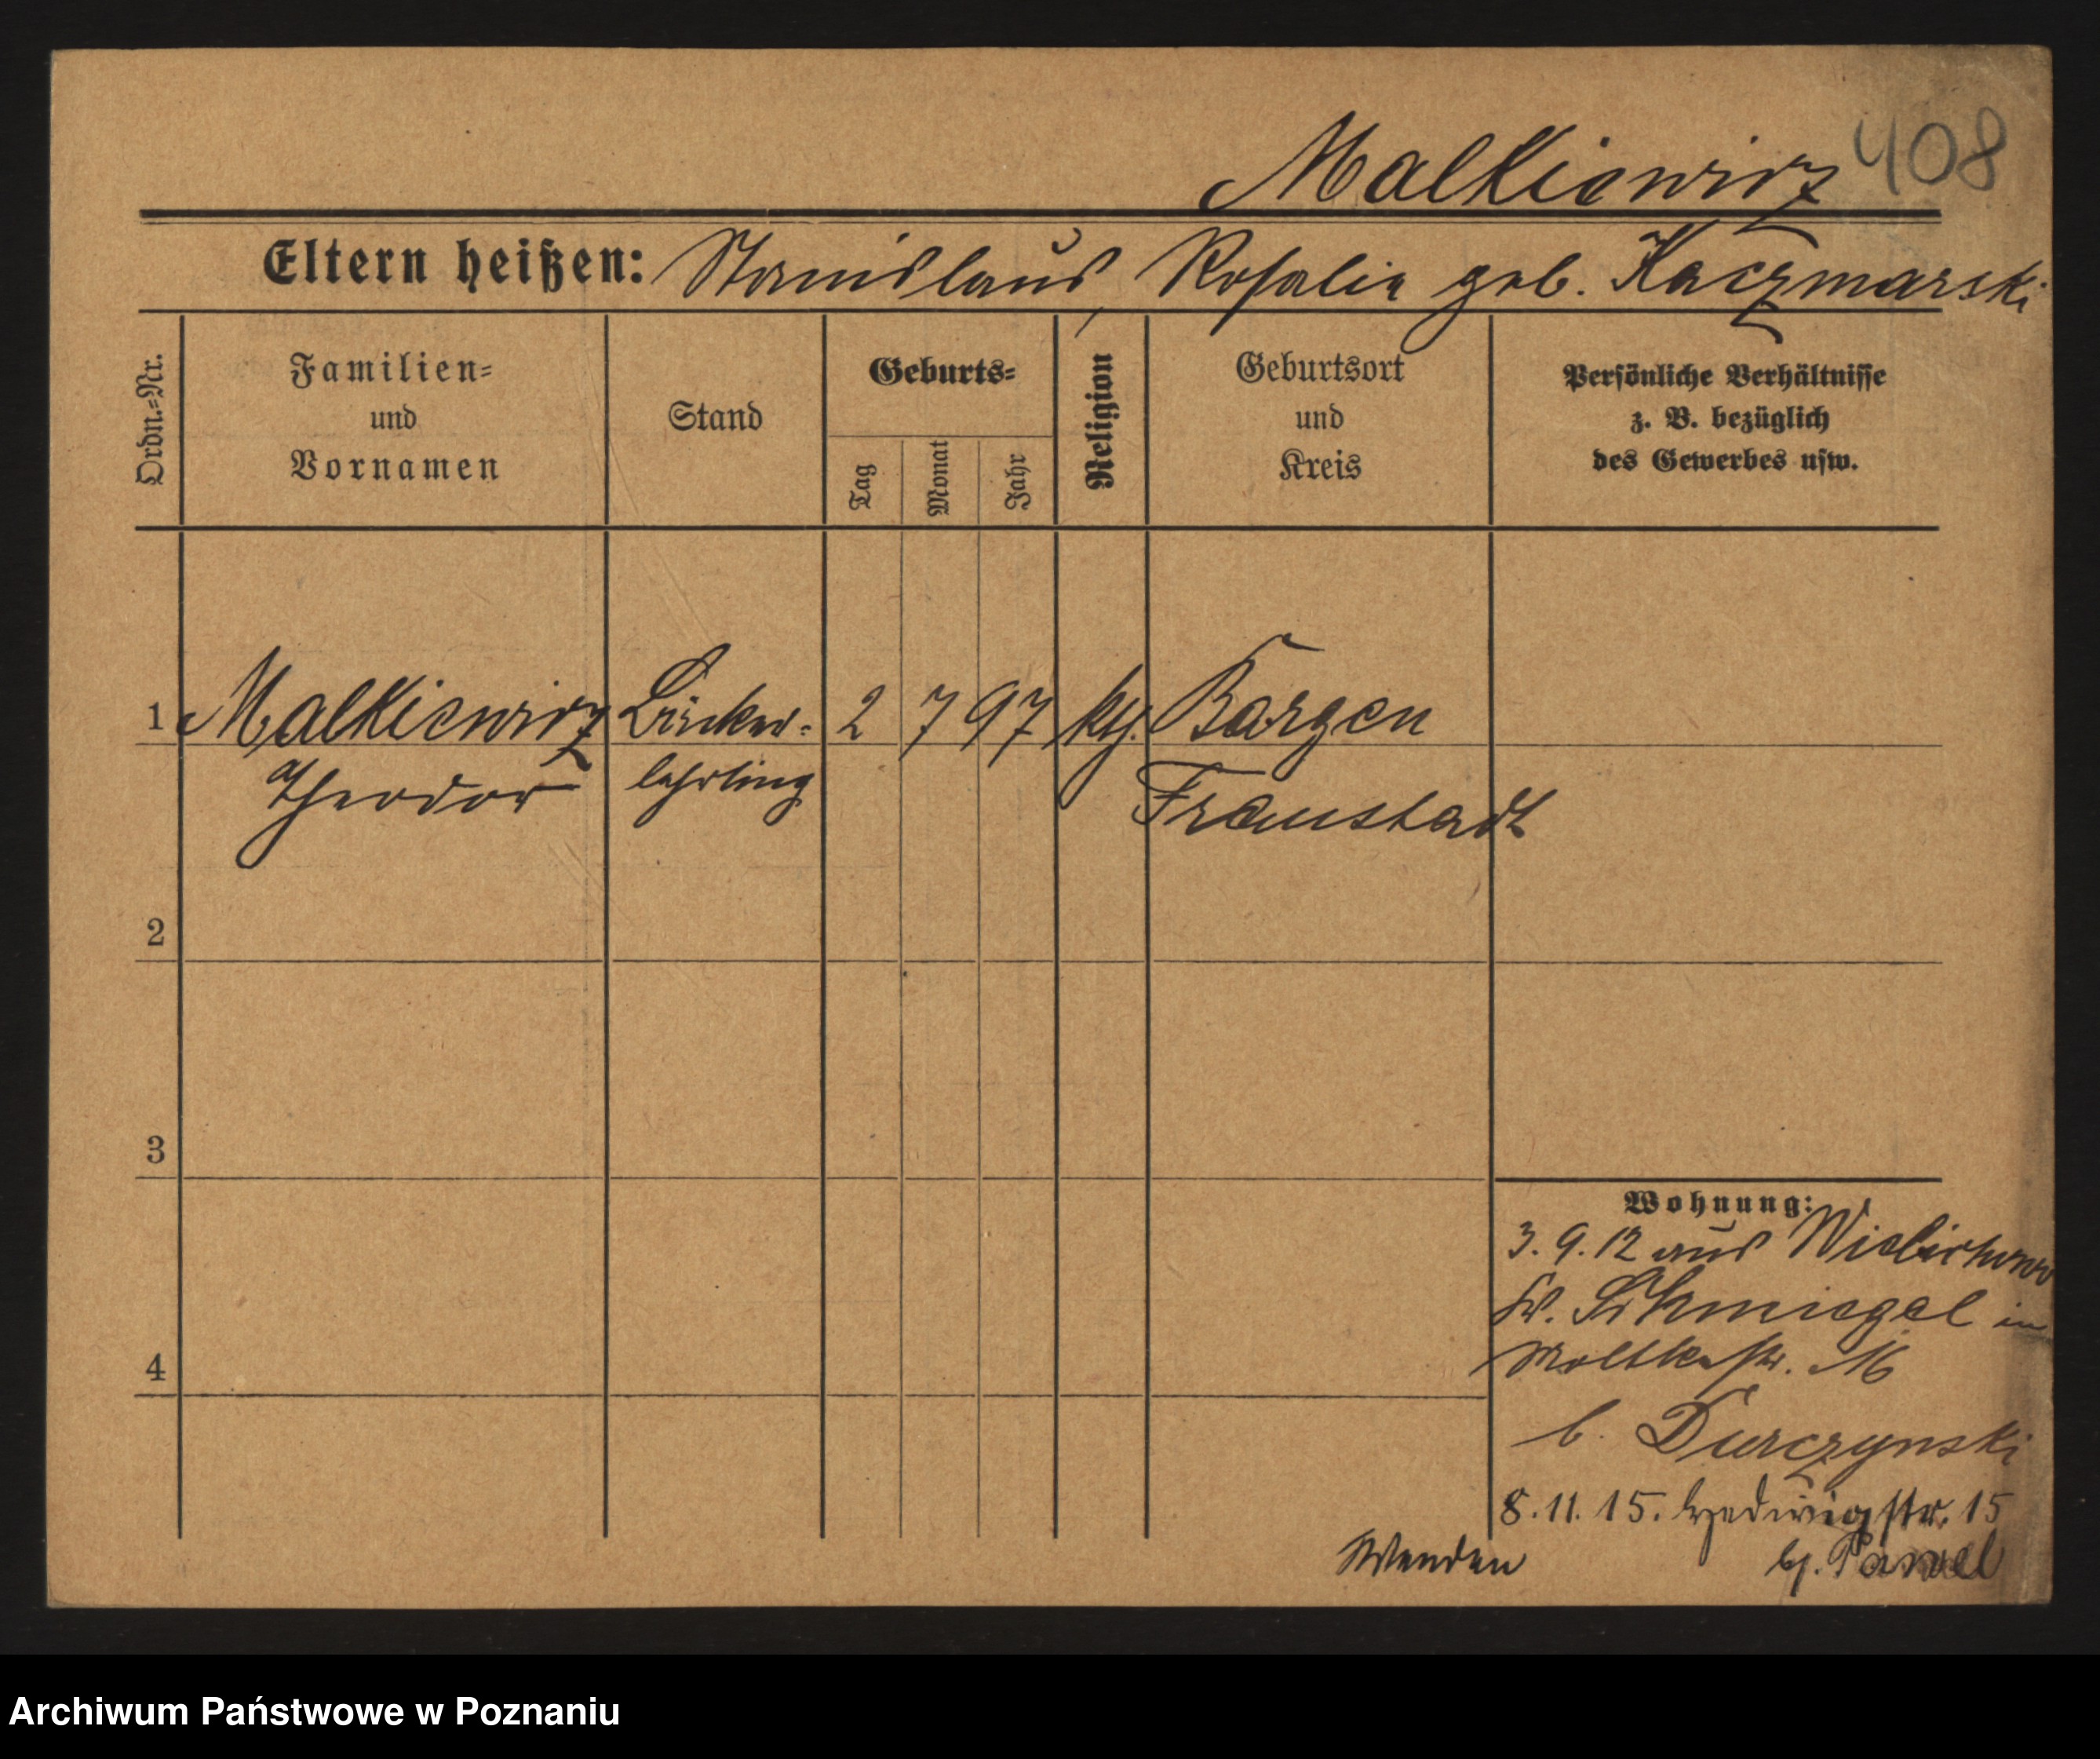 Malkiewicz 408
Eltern heißen: Stanislaus, Rosalie geb. Kaczmarski
Ordn.=Nr.
Familien=
und
Vornamen
Stand
Geburts=
Tag
Monat
Jahr
Religion
Geburtsort
und
Kreis
Persönliche Verhältnisse
z. B. bezüglich
des Gewerbes usw.
1 Malkiewicz Bäcker= 2 7 97 Bargen
Theodor lehrling Fraustadt
2
3
4
Wohnung:
3. 9. 12 aus Wielichowo
Kr. Schmiegel in
Moltkestr.
b. Durczynski
8. 11. 15. Hedwigstr. 15
Wenden b. Pawel
Archiwum Państwowe w Poznaniu